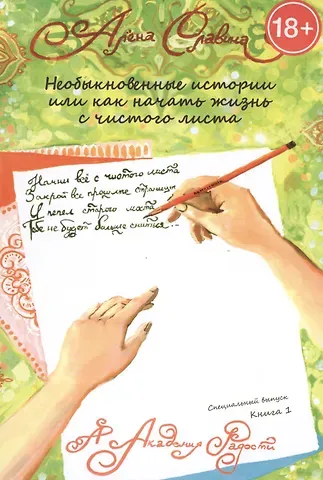 Алёна Славина
18+
Необыкновенные истории
или как начать жизнь
с чистого листа
Начни всё с чистого листа
Закрой все прошлые страницы
И пепел старого моста
Тебе не будет больше сниться...
Специальный выпуск
Книга 1
АР Академия Радости